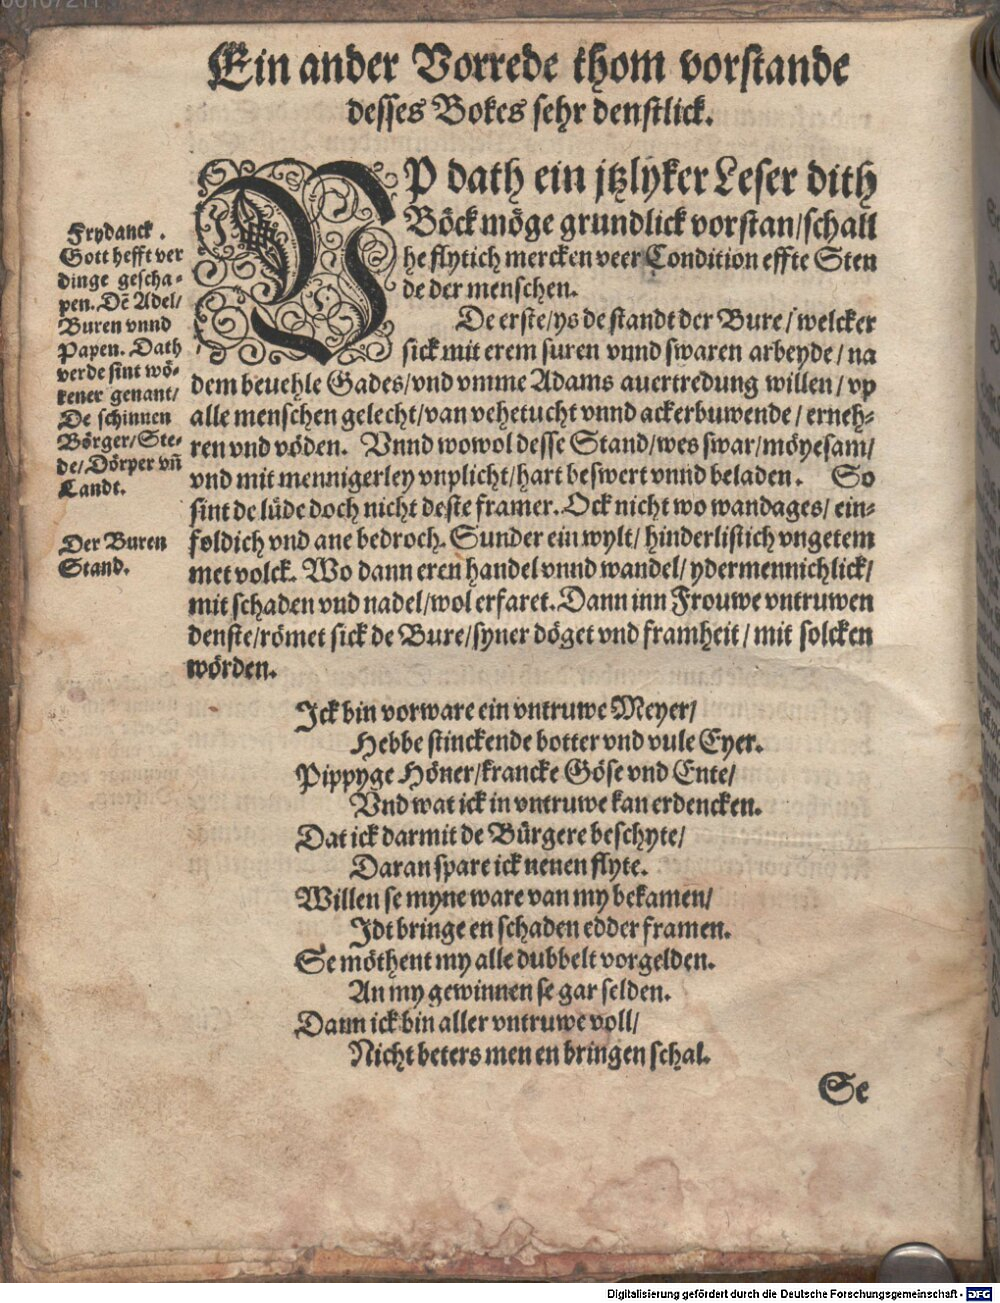 Ein ander Vorrede thom vorstande
desses Bokes sehr denstlick.
VP dath ein jtzlyker Leser dith
Böck möge grundlick vorstan/schall
he flytich mercken veer Condition effte Sten
de der menschen.
De erste/ys de standt der Bure/welcker
sick mit erem suren vnnd swaren arbeyde/na
dem beuehle Gades/vnd vmme Adams auertredung willen/vp
alle menschen gelecht/van vehetucht vnnd ackerbuwende/erneh-
ren vnd vöden. Vnnd wowol desse Stand/wes swar/möyesam/
vnd mit mennigerley vnplicht/hart beswert vnnd beladen. So
sint de lüde doch nicht deste framer. Ock nicht wo wandages/ein-
foldich vnd ane bedroch. Sunder ein wylt/hinderlistich vngetem
met volck. Wo dann eren handel vnnd wandel/ydermennichlick/
mit schaden vnd nadel/wol erfaret. Dann inn Frouwe vntruwen
denste/römet sick de Bure/syner döget vnd framheit/mit solcken
wörden.
Frydanck.
Gott hefft ver
dinge gescha-
pen. Dē Adel/
Buren vnnd
Papen. Dath
verde sint wö-
kener genant/
De schinnen
Börger/Ste-
de/Dörper vñ
Landt.
Der Buren
Stand.
Ick bin vorware ein vntruwe Meyer/
Hebbe stinckende botter vnd vule Eyer.
Pippyge Höner/krancke Göse vnd Ente/
Vnd wat ick in vntruwe kan erdencken.
Dat ick darmit de Bürgere beschyte/
Daran spare ick nenen flyte.
Willen se myne ware van my bekamen/
Idt bringe en schaden edder framen.
Se möthent my alle dubbelt vorgelden.
An my gewinnen se gar selden.
Dann ick bin aller vntruwe voll/
Nicht beters men en bringen schal.
Se
Digitalisierung gefördert durch die Deutsche Forschungsgemeinschaft - DFG